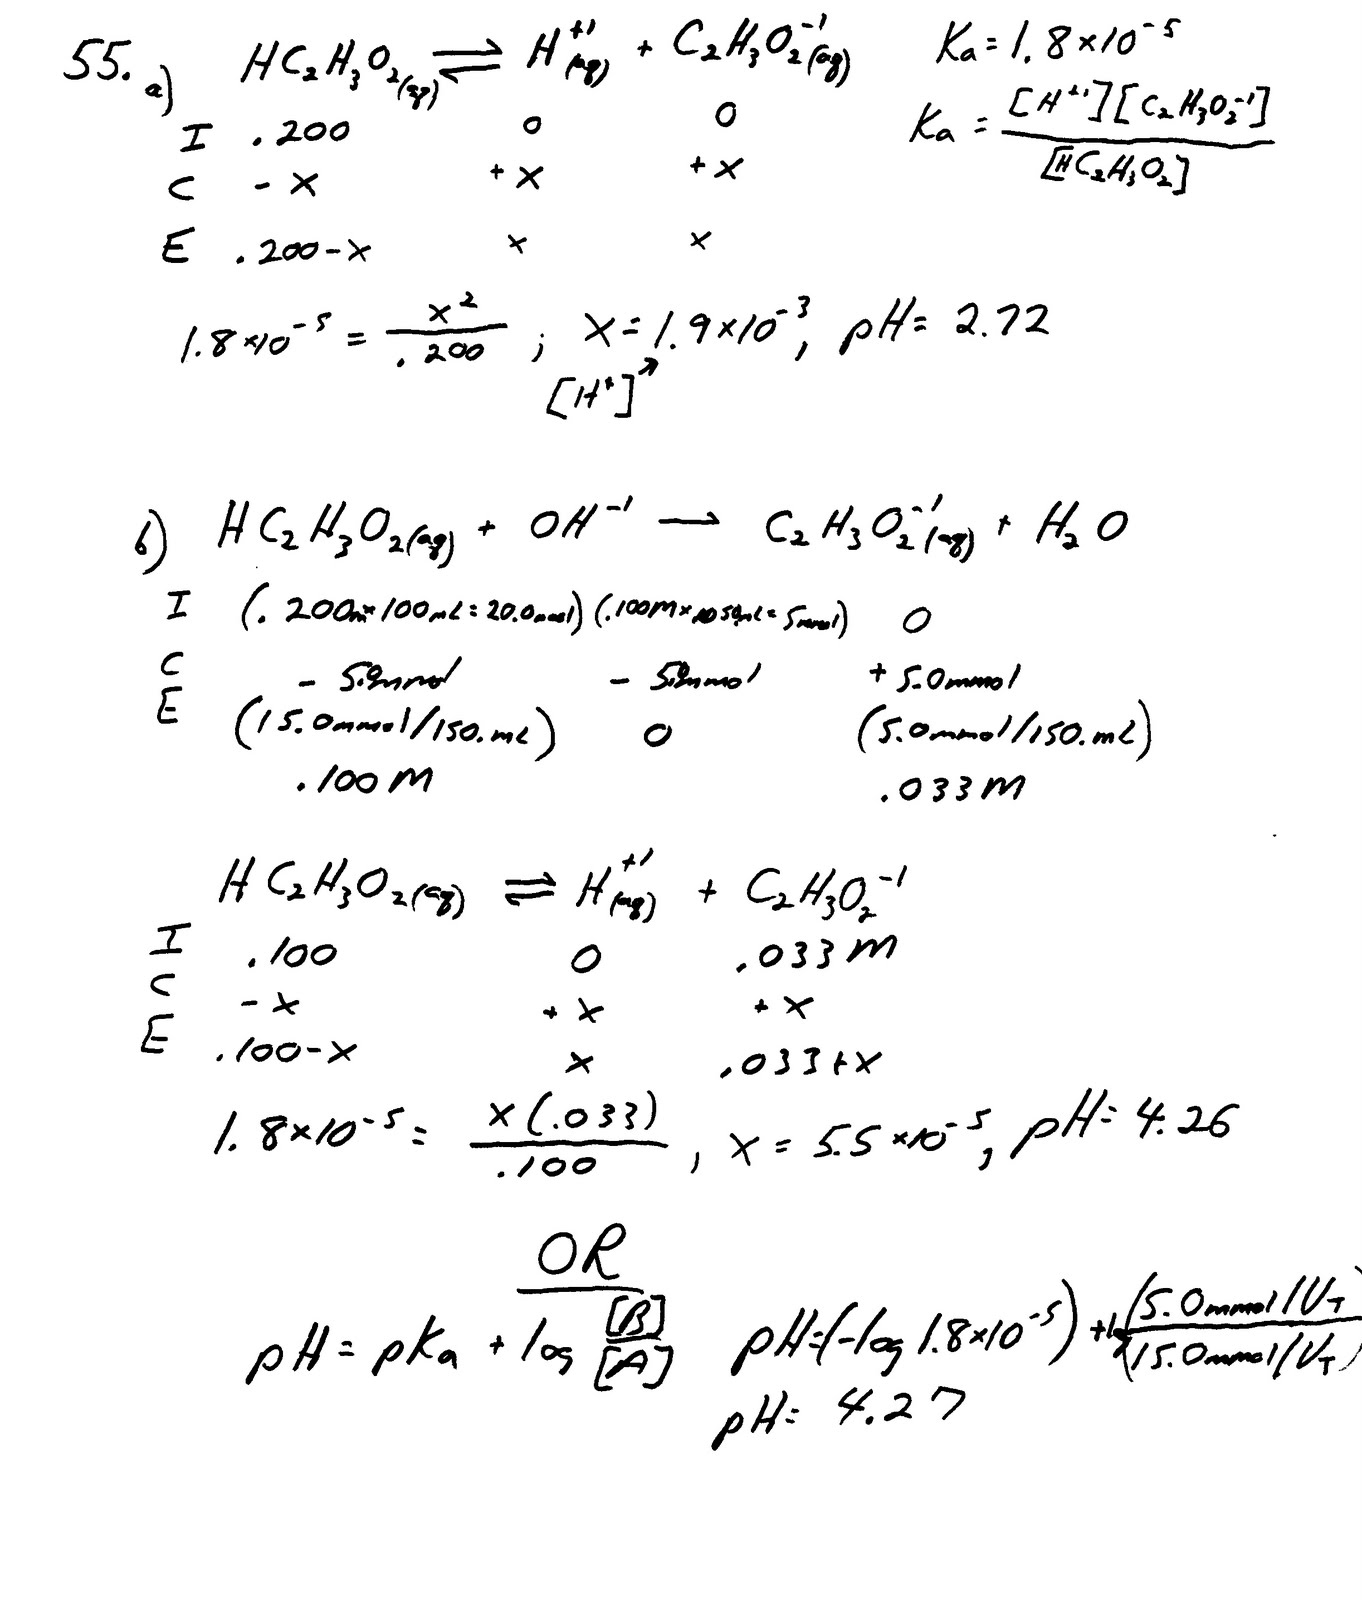 55. a) HC₂H₃O₂(aq) ⇌ H⁺¹(aq) + C₂H₃O₂⁻¹(aq) Ka = 1.8×10⁻⁵
I .200 0 0 Ka = [H⁺¹][C₂H₃O₂⁻¹] / [HC₂H₃O₂]
C - x + x + x
E .200-x x x
1.8×10⁻⁵ = x² / .200 ; x = 1.9×10⁻³, pH = 2.72
[H⁺]↗
b) HC₂H₃O₂(aq) + OH⁻¹ → C₂H₃O₂⁻¹(aq) + H₂O
I (.200M×100mL = 20.0mmol) (.100M× 50mL = 5mmol) 0
C - 5.0mmol - 5.0mmol + 5.0mmol
E (15.0mmol/150.mL) 0 (5.0mmol/150.mL)
.100M .033M
HC₂H₃O₂(aq) ⇌ H⁺¹(aq) + C₂H₃O₂⁻¹
I .100 0 .033M
C - x + x + x
E .100-x x .033+x
1.8×10⁻⁵ = x(.033) / .100 , x = 5.5×10⁻⁵, pH = 4.26
OR
pH = pKa + log [B]/[A] pH = (-log 1.8×10⁻⁵) + log (5.0mmol/V_T) / (15.0mmol/V_T)
pH = 4.27